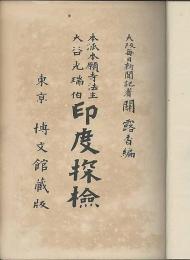 大阪毎日新聞記者 關露香編
本派本願寺法主
大谷光瑞伯
印度探檢
東京 博文館藏版